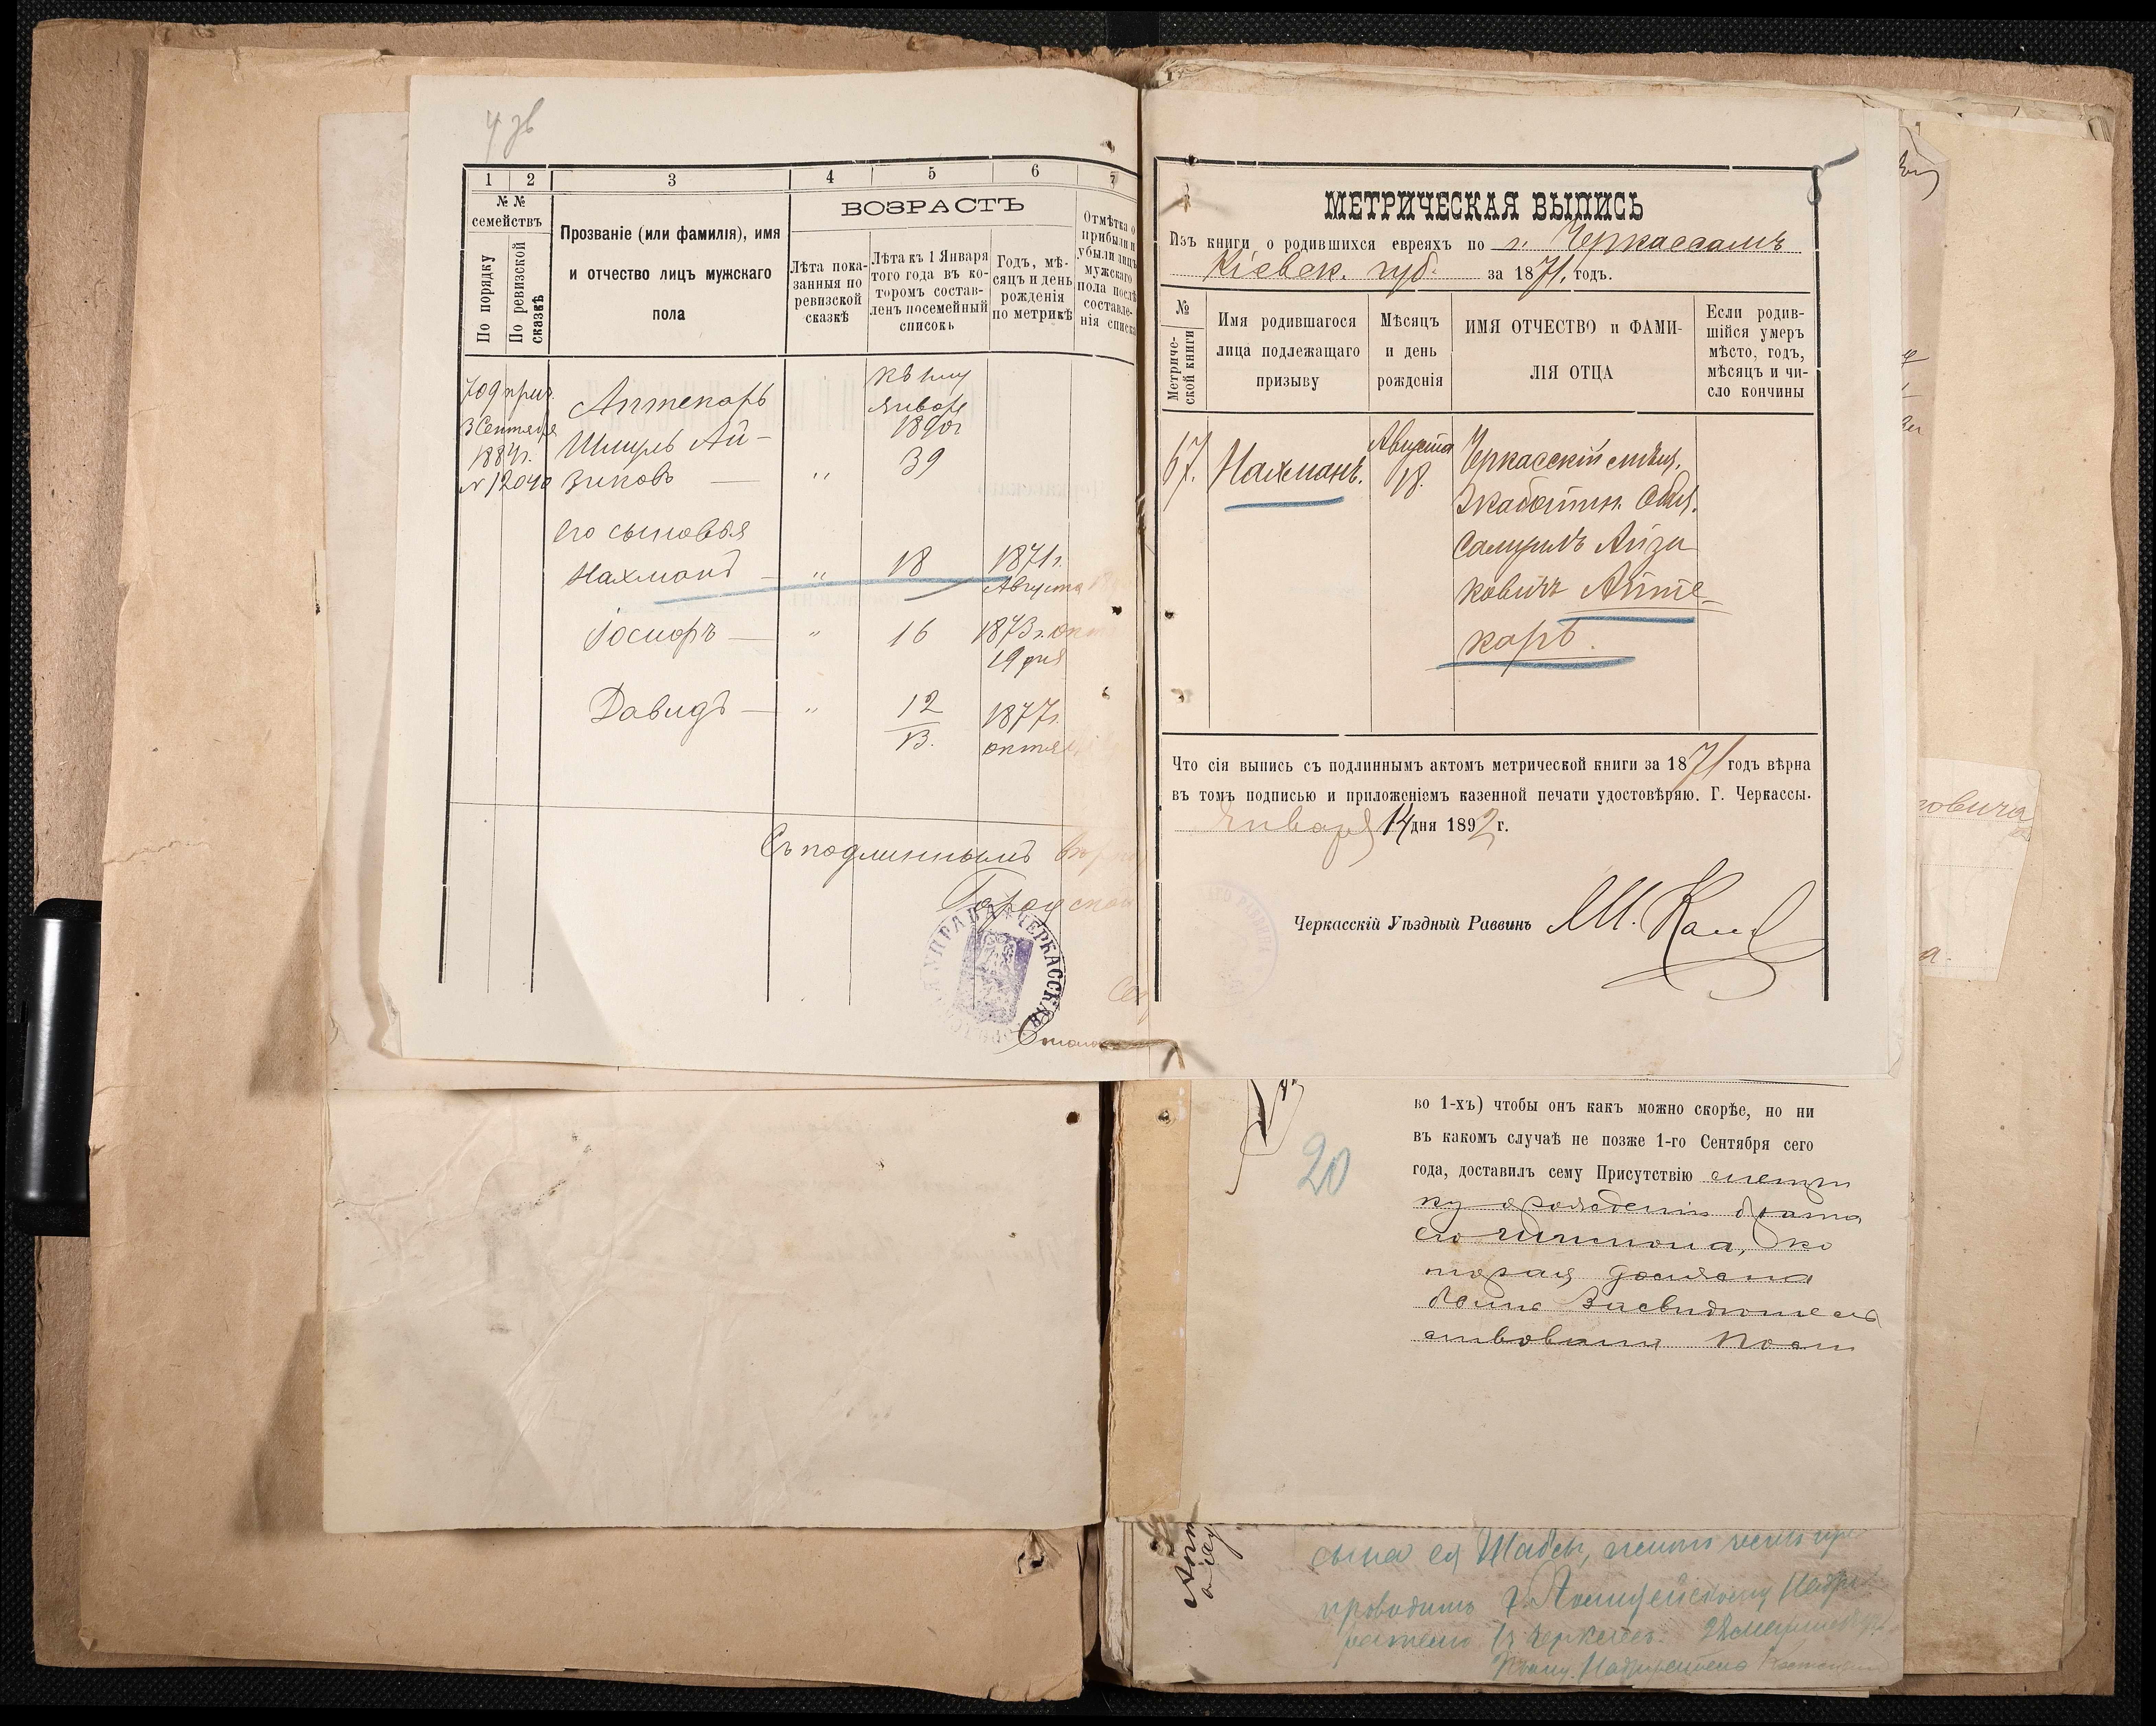 4 зв
1 2 3 4 5 6 7
№ №
семействъ
По порядку
По ревизской сказкѣ
Прозваніе (или фамилія), имя
и отчество лицъ мужскаго
пола
ВОЗРАСТЪ
Лѣта пока-
занныя по
ревизской
сказкѣ
Лѣта къ 1 Января
того года въ ко-
торомъ состав-
ленъ посемейный
списокъ
Годъ, мѣ-
сяцъ и день
рожденія
по метрикѣ
Отмѣтка о
прибыли и
убыли лицъ
мужскаго
пола послѣ
составле-
нія списка
709 прич.
3 Сентября
1884г.
№ 12040
Аптекарь
Шмуль Ай-
зиковъ —
„
къ 1му
Января
1890г
39
его сыновья
Нахманъ — „ 18 1871г.
Августа
Іосифъ — „ 16 1873г. окт
19 дня
Давидъ — „ 12 1877г.
13. октя
Съ подлиннымъ вѣрно
Городской
УПРАВА ЧЕРКАССКАЯ
МЕТРИЧЕСКАЯ ВЫПИСЬ
Изъ книги о родившихся евреяхъ по г. Черкассамъ
Кіевск. губ. за 1871, годъ.
№
Метриче-
ской книги
Имя родившагося
лица подлежащаго
призыву
Мѣсяцъ
и день
рожденія
ИМЯ ОТЧЕСТВО и ФАМИ-
ЛІЯ ОТЦА
Если родив-
шійся умеръ
мѣсто, годъ,
мѣсяцъ и чи-
сло кончины
67. Нахманъ.
Августа
18.
Черкасскій мѣщ.
Самуилъ Айзи
ковичъ Апте-
карь.
Что сія выпись съ подлиннымъ актомъ метрической книги за 1871 годъ вѣрна
въ томъ подписью и приложеніемъ казенной печати удостовѣряю. Г. Черкассы.
Января 14 дня 1892 г.
Черкасскій Уѣздный Раввинъ
во 1-хъ) чтобы онъ какъ можно скорѣе, но ни
въ какомъ случаѣ не позже 1-го Сентября сего
года, доставилъ сему Присутствію метри
ку о рожденіи брата
его
торая должна
быть засвидѣтель
ствована
20
сына ея Шабсы,
проводить г. Полицейскому Надзи
рателю